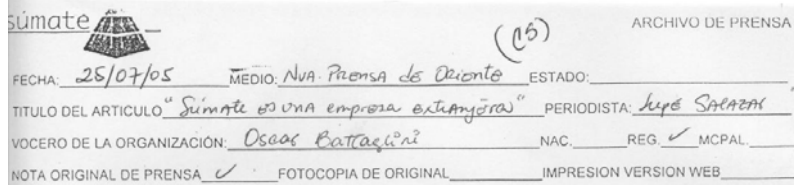 súmate
(15) ARCHIVO DE PRENSA
FECHA: 25/07/05 MEDIO: Nva. Prensa de Oriente ESTADO:
TITULO DEL ARTICULO "Súmate es una empresa extranjera" PERIODISTA: Lupe Salazar
VOCERO DE LA ORGANIZACIÓN: Oscar Battaglini NAC. REG. ✓ MCPAL.
NOTA ORIGINAL DE PRENSA ✓ FOTOCOPIA DE ORIGINAL IMPRESION VERSION WEB